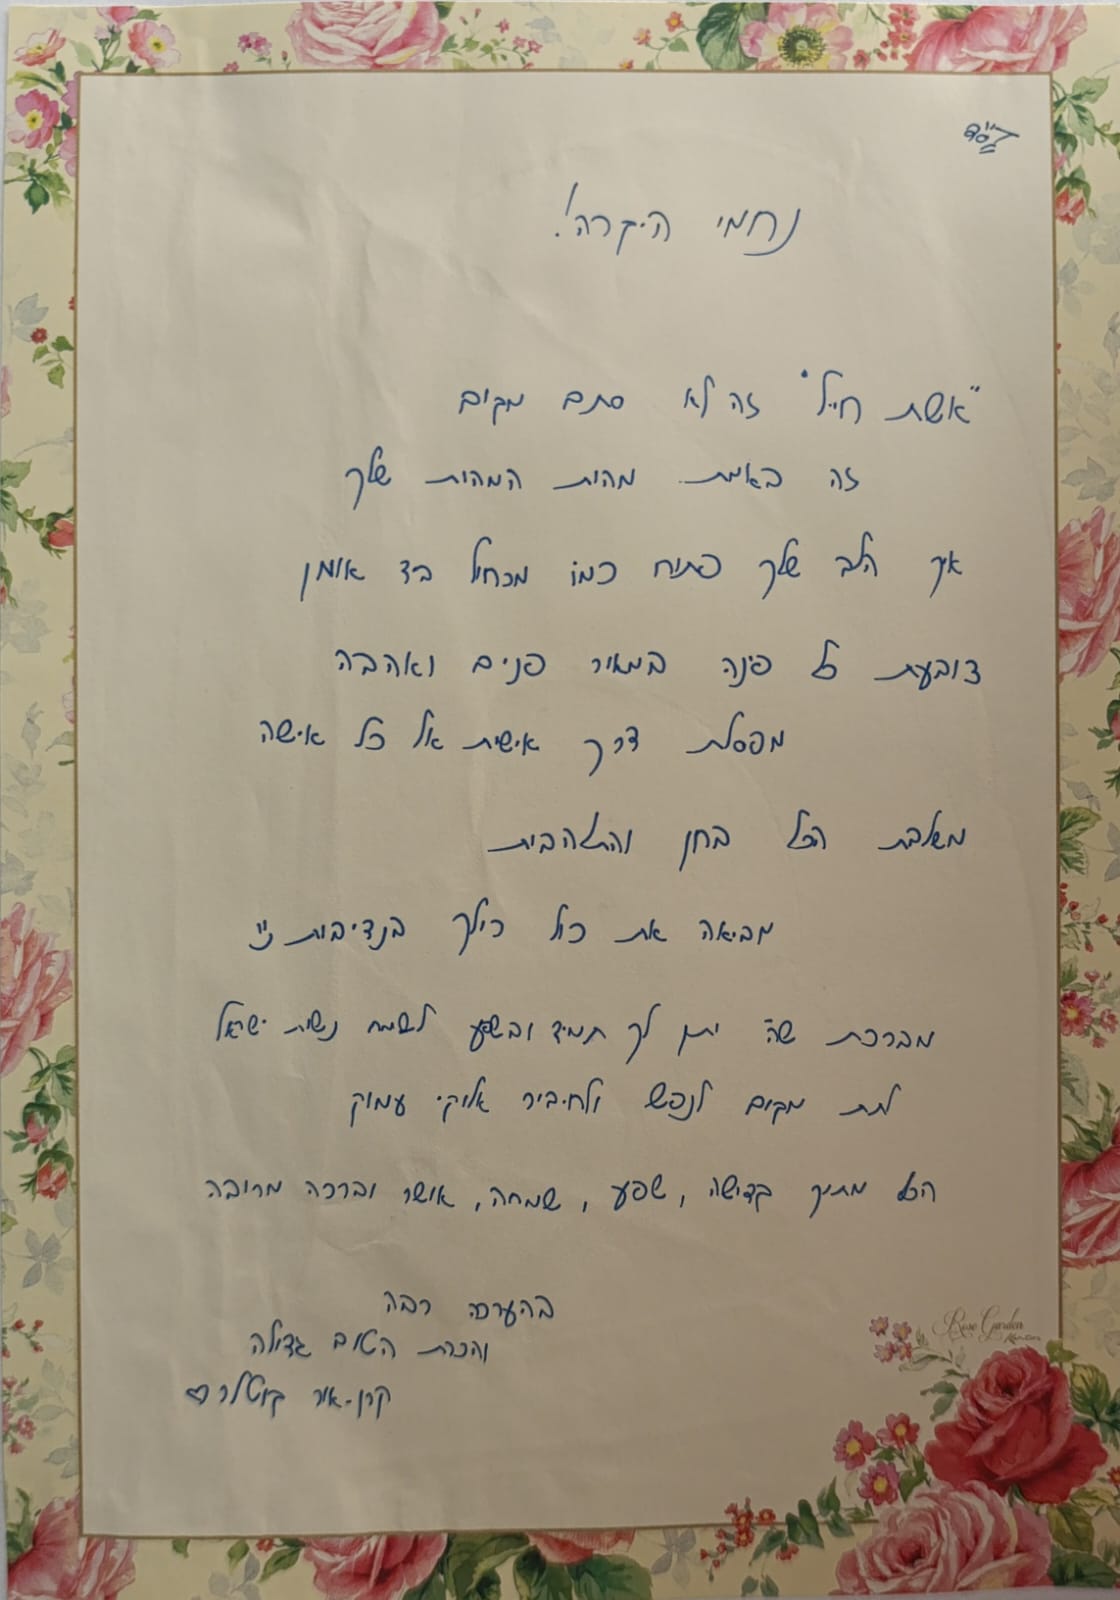 בס"ד
נחמי היקרה!
"אשת חיל" זה לא סתם מקום
זה באמת מהות המהות שלך
איך הלב שלך פתוח כמו מכחול ביד אומן
צובעת כל פינה במאור פנים ואהבה
מפסלת דרך אישית אל כל אישה
משלבת הכל בחן והתלהבות
מביאה את כול כולך בנדיבות
מברכת שה' יתן לך תמיד ובשפע לשמח נשות ישראל
לתת מקום לנפש ולחיבור אלוקי עמוק
הכל מתוך קדושה, שפע, שמחה, אושר וברכה מרובה
בהערכה רבה
והכרת הטוב גדולה
קרן-אור בוטלר ♡
Rose Garden